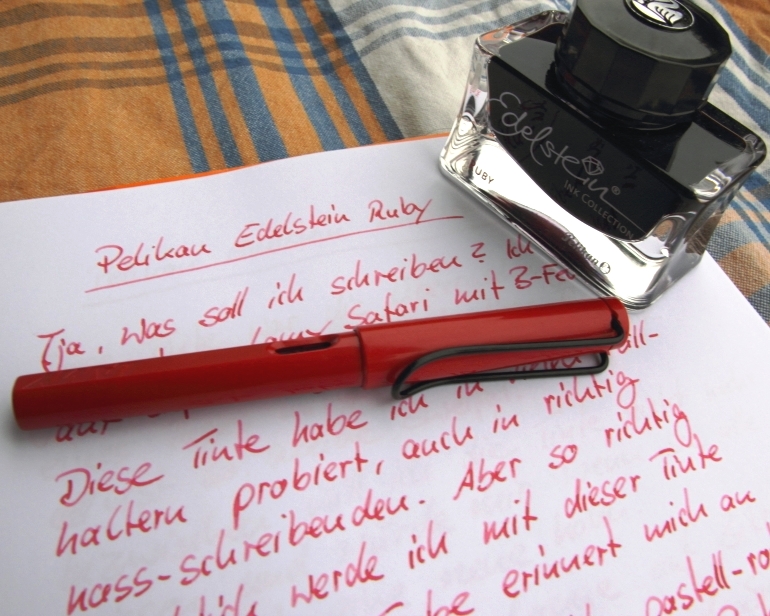 Edelstein®
INK COLLECTION
RUBY
Pelikan
Pelikan Edelstein Ruby
Tja, was soll ich schreiben? Ich
Safari mit B-Fe
auf
habe ich in
Diese Tinte habe ich in vielen Füll-
haltern probiert, auch in richtig
nass-schreibenden. Aber so richtig
werde ich mit dieser Tinte
erinnert mich an
pastell-ro